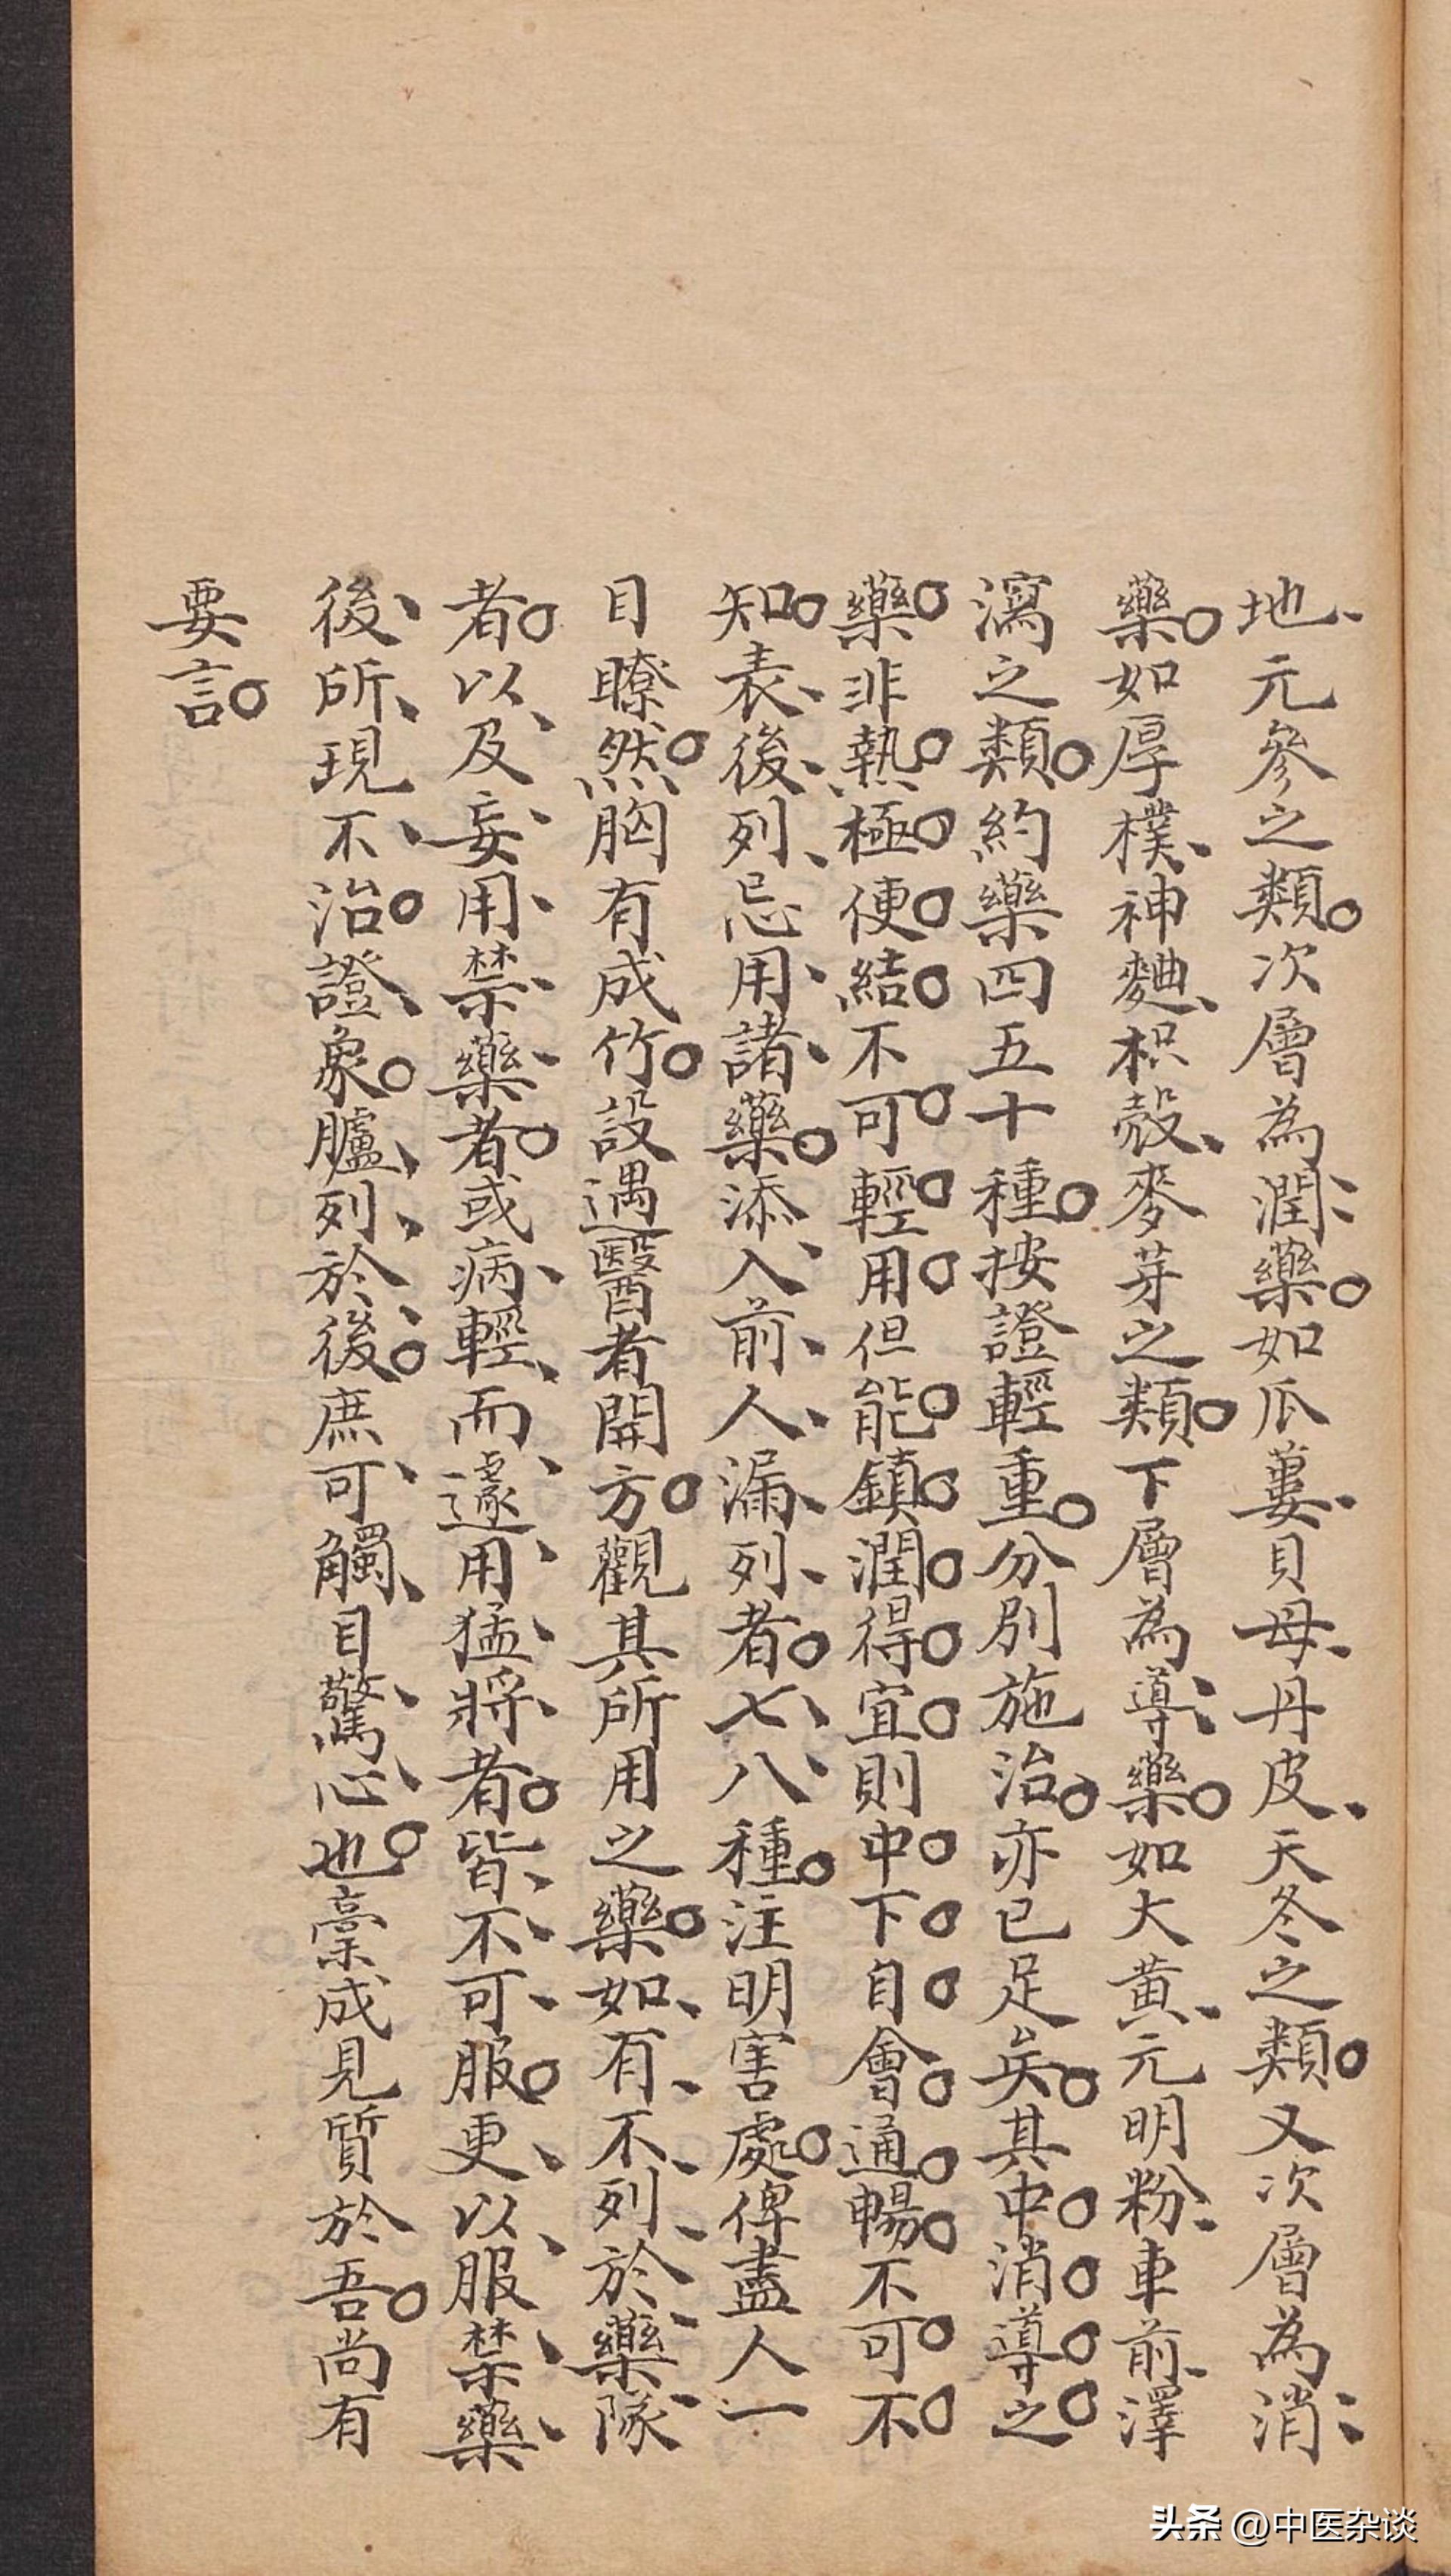 地元參之類次層為潤藥如瓜蔞貝母丹皮天冬之類又次層為消
藥如厚樸神麯枳殼麥芽之類下層為導藥如大黃元明粉車前澤
瀉之類約藥四五十種按證輕重分別施治亦已足矣其中消導之
藥非熱極便結不可輕用但能鎮潤得宜則中下自會通暢不可不
知表後列忌用諸藥添入前人漏列者七八種注明害處俾盡人一
目瞭然胸有成竹設遇醫者開方觀其所用之藥如有不列於藥隊
者以及妄用禁藥者或病輕而遽用猛將者皆不可服更以服禁藥
後所現不治證象臚列於後庶可觸目驚心也稾成見質於吾尚有
要言
头条 @中医杂谈